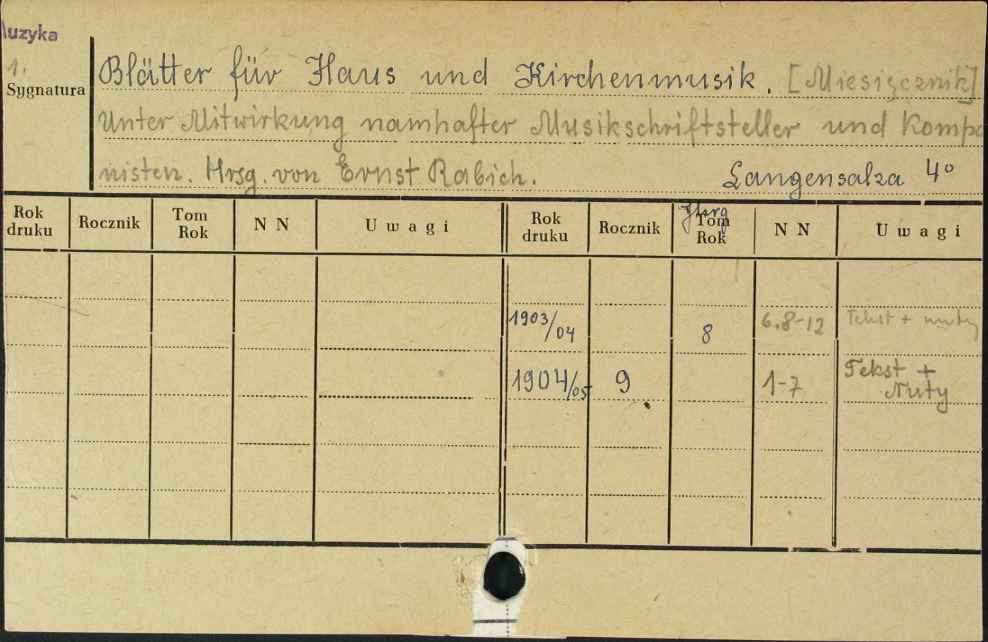 Muzyka
1.
Sygnatura
Blätter für Haus und Kirchenmusik. [Miesięcznik]
Unter Mitwirkung namhafter Musikschriftsteller und Kompo
nisten. Hrsg. von Ernst Rabich. Langensalza 4°
Rok druku Rocznik Tom Rok NN Uwagi Rok druku Rocznik Jhrg Tom Rok NN Uwagi
1903/04 8 6.8-12 Tekst + nuty
1904/05 9 1-7 Tekst + Nuty